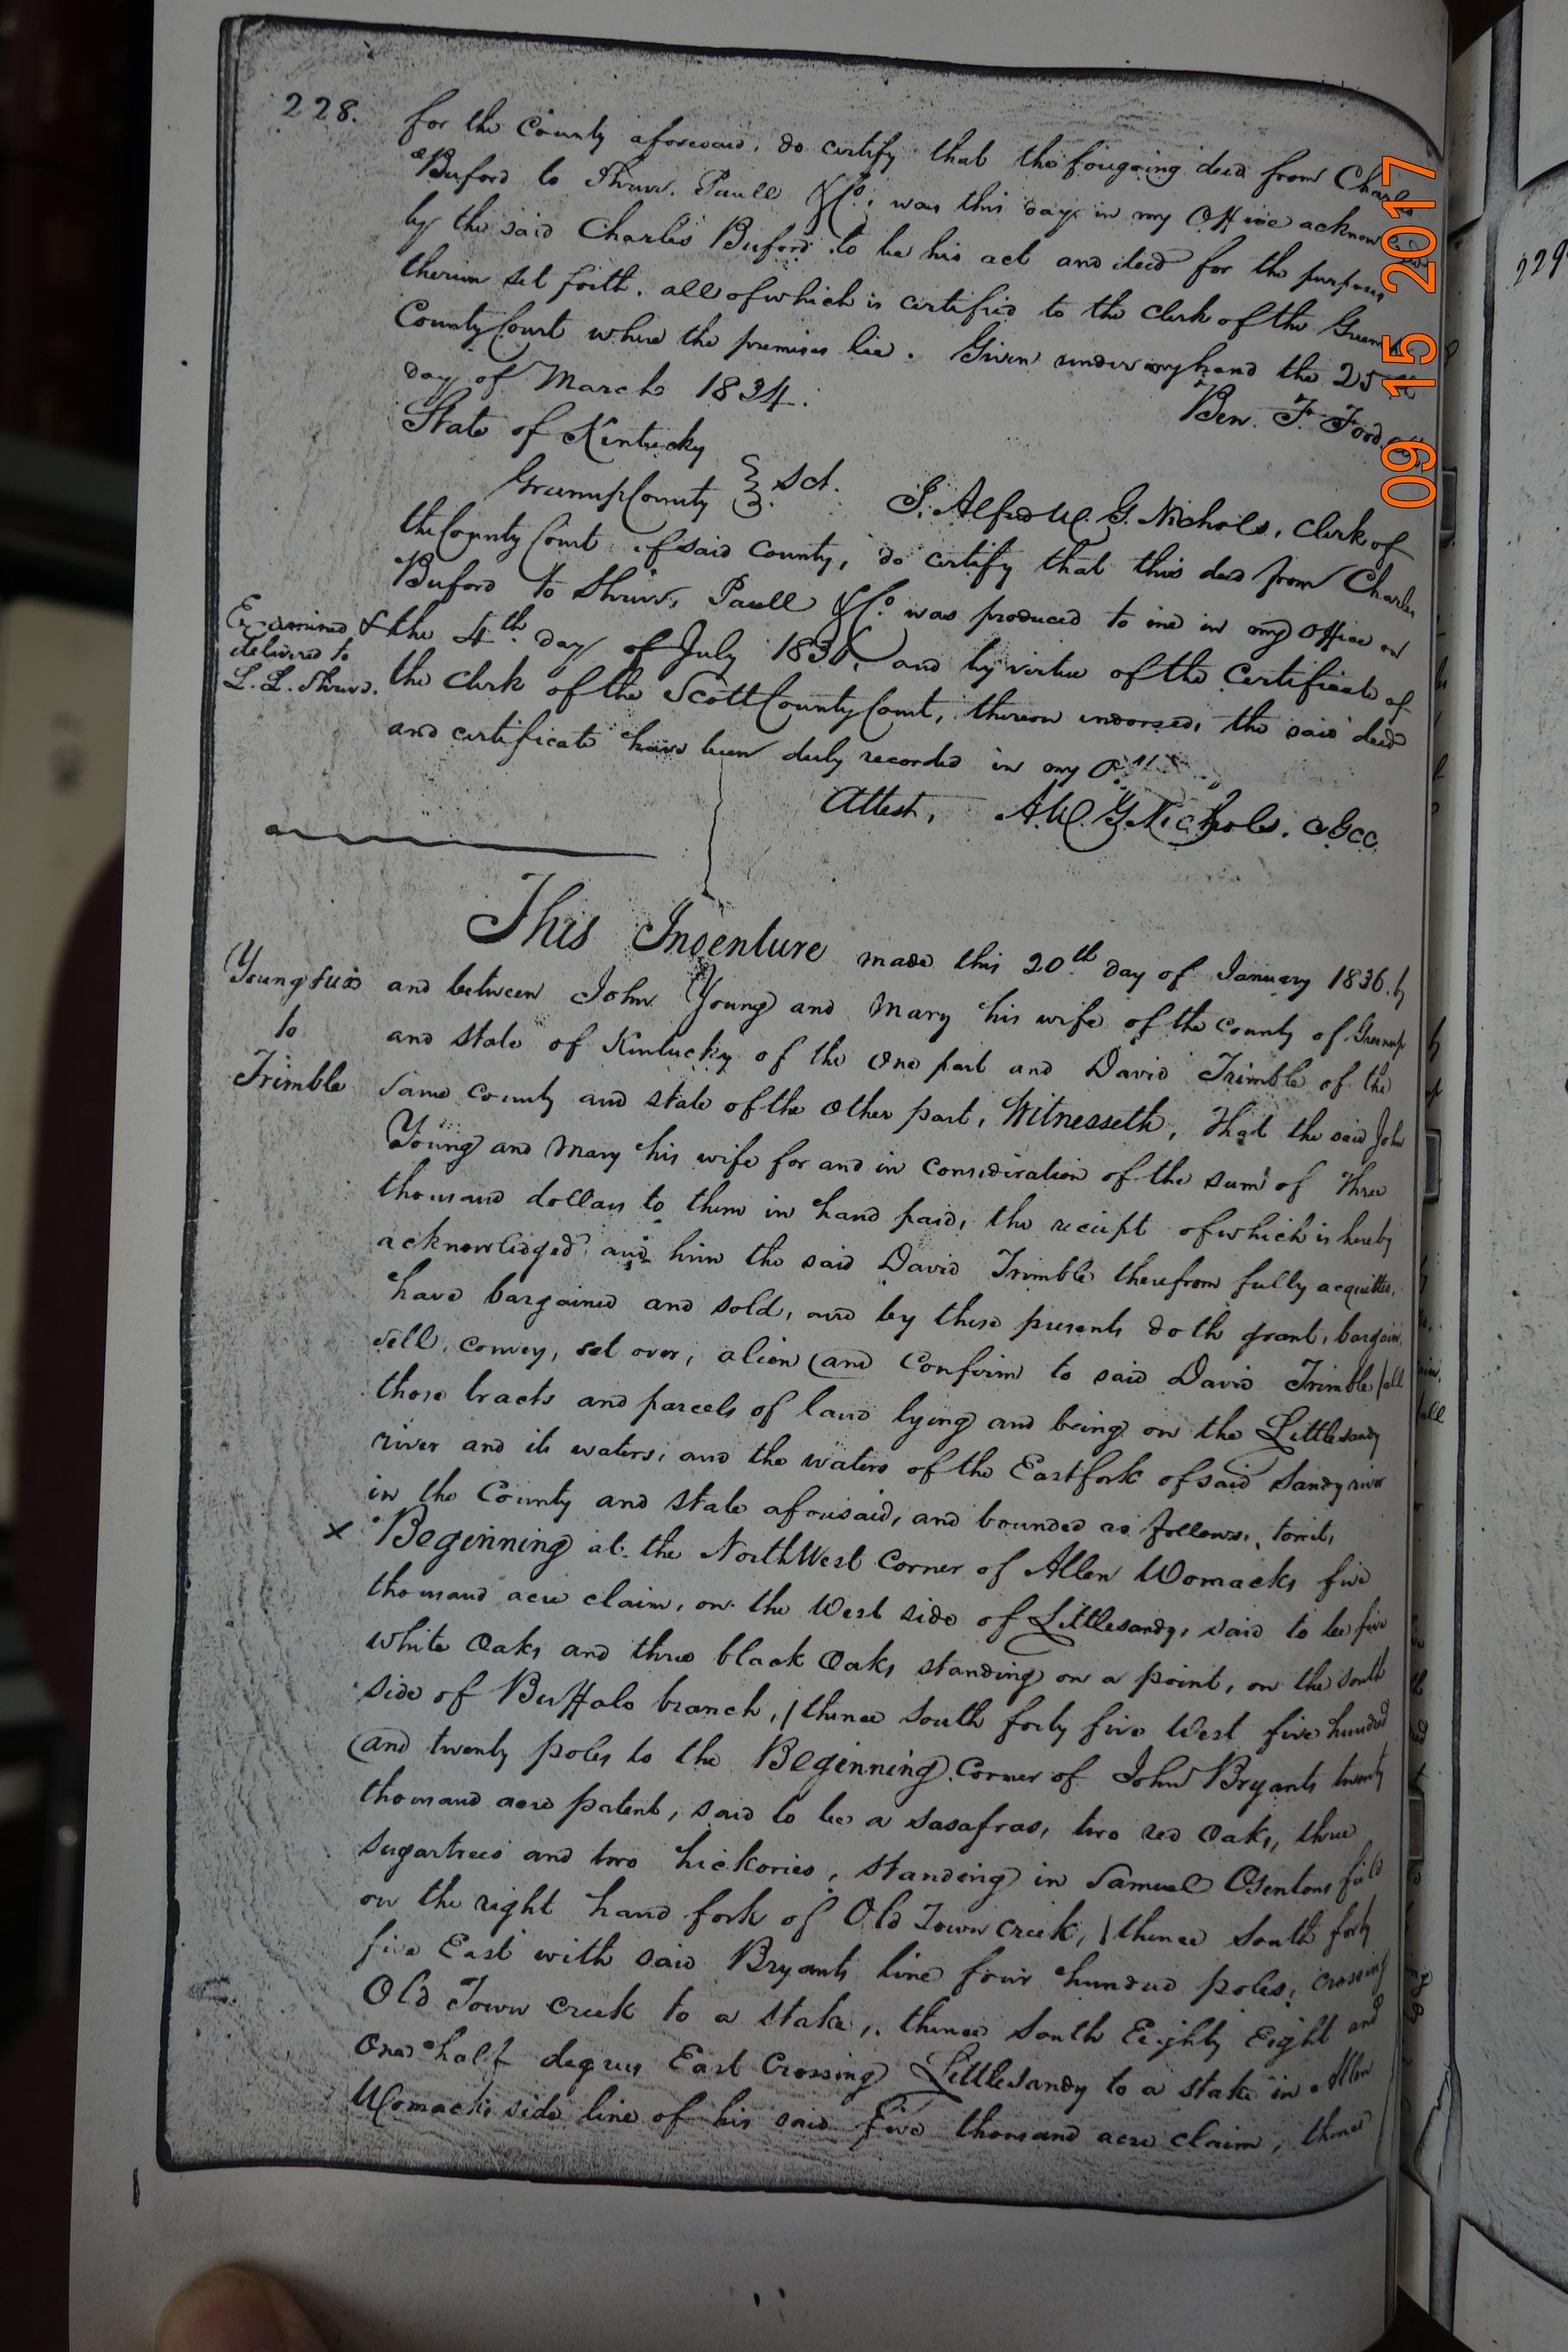 228.
for the County aforesaid, do certify that the foregoing deed from Charles
Buford to Shreve, Paull & Co. was this day in my Office
by the said Charles Buford to be his act and deed for the purposes
therein set forth, all of which is certified to the clerk of the
County Court where the premises lie. Given under my hand the 25th
day of March 1834.
Ben. F. Ford
State of Kentucky
Greenup County } Sct.
I. Alfred W. G. Nichols, Clerk of
the County Court of said County, do certify that this deed from Charles
Buford to Shreve, Paull & Co was produced to me in my Office on
the 4th day of July 1836, and by virtue of the Certificate of
the clerk of the Scott County Court, thereon indorsed, the said deed
and certificate have been duly recorded in my
Attest, A. W. G. Nichols. CGCC.
Examined &
delivered to
L. L. Shreve.
This Indenture made this 20th day of January 1836. by
and between John Young and Mary his wife of the County of Greenup
and state of Kentucky of the One part and David Trimble of the
same County and state of the Other part, Witnesseth, That the said John
Young and Mary his wife for and in consideration of the sum of Three
thousand dollars to them in hand paid, the receipt of which is hereby
acknowledged and him the said David Trimble therefrom fully acquitted,
have bargained and sold, and by these presents doth grant, bargain,
sell, convey, set over, alien and Confirm to said David Trimble all
those tracts and parcels of land lying and being on the Little sandy
river and its waters, and the waters of the East fork of said Sandy river
in the County and state aforesaid, and bounded as follows, towit,
Young &ux
to
Trimble
x Beginning at the North West Corner of Allen Womacks five
thousand acre claim, on the West side of Little sandy, said to be five
white Oaks and three black Oaks standing on a point, on the south
side of Buffalo branch, / thence South forty five West five hundred
and twenty poles to the Beginning Corner of John Bryants twenty
thousand acre patent, said to be a sasafras, two red Oaks, three
sugartrees and two hickories, standing in Samuel Osentons field
on the right hand fork of Old Town Creek, / thence South forty
five East with said Bryants line four hundred poles, crossing
Old Town Creek to a stake, thence South Eighty Eight and
One half degrees East Crossing Little sandy to a stake in Allen
Womacks side line of his said five thousand acre claim, thence
09 15 2017
229